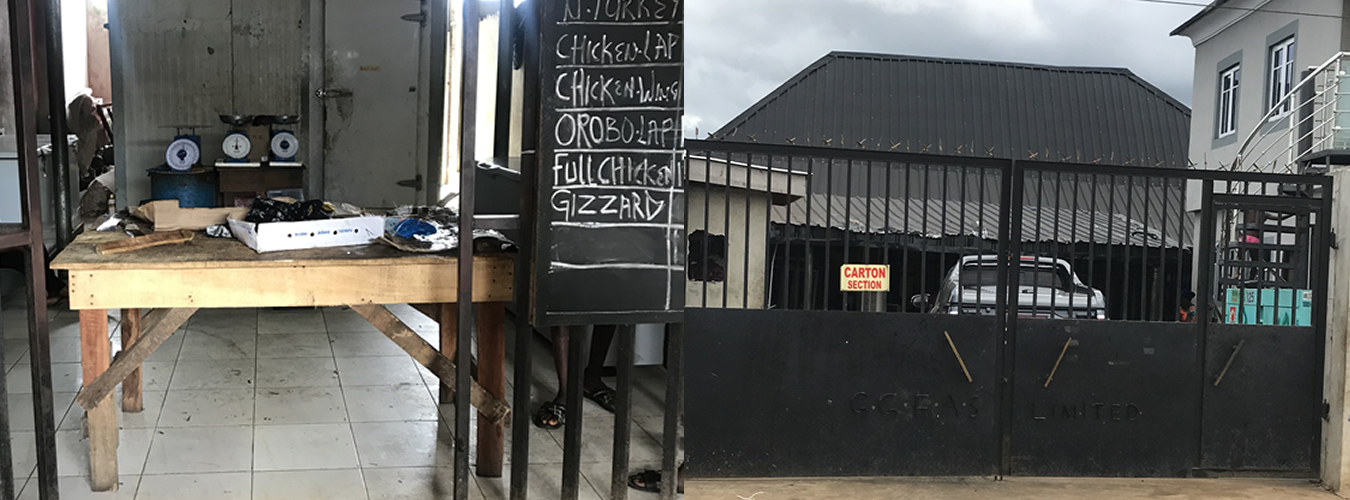 N. TURKEY
CHICKEN. LAP
CHICKEN. WING
OROBO. LAP
FULL CHICKEN
GIZZARD
CARTON
SECTION
LIMITED